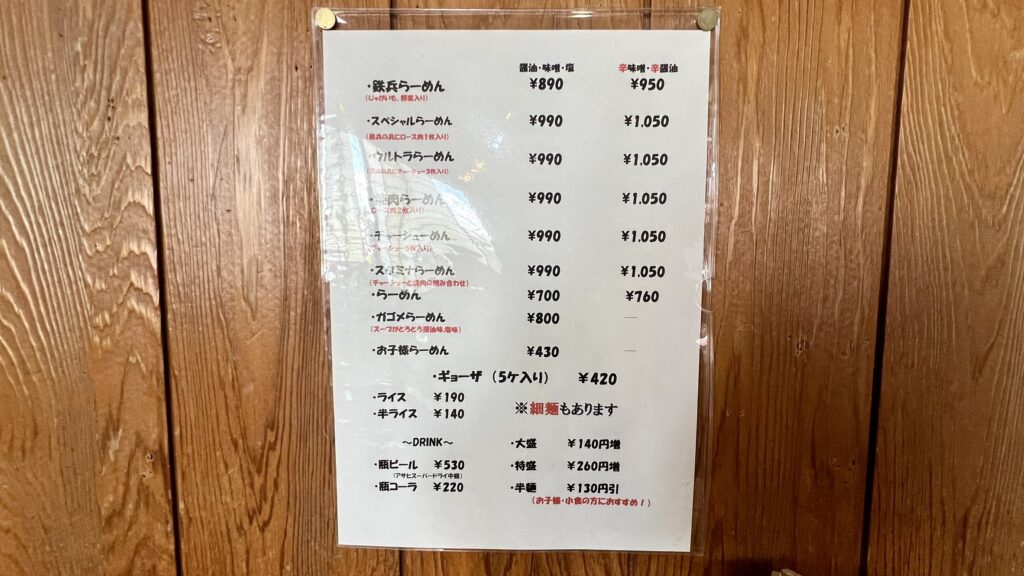 醤油・味噌・塩 辛味噌・辛醤油
・鉄兵らーめん ¥890 ¥950
(じゃがいも、野菜入り)
・スペシャルらーめん ¥990 ¥1.050
(鉄兵の具にロース肉1枚入り)
・ウルトラらーめん ¥990 ¥1.050
の具にチャーシュー3枚入り)
肉らーめん ¥990 ¥1.050
ロース肉2枚入り)
・チャーシューめん ¥990 ¥1.050
チャーシュー5枚入り)
・スタミナらーめん ¥990 ¥1.050
(チャーシューと肉の組み合わせ)
・らーめん ¥700 ¥760
・ガゴメらーめん ¥800 ―
(スープがとろとろ醤油味、塩味)
・お子様らーめん ¥430 ―
・ギョーザ (5ケ入り) ¥420
・ライス ¥190
・半ライス ¥140
※細麺もあります
～DRINK～
・瓶ビール ¥530
(アサヒスーパードライ中瓶)
・瓶コーラ ¥220
・大盛 ¥140円増
・特盛 ¥260円増
・半麺 ¥130円引
(お子様・小食の方におすすめ!)